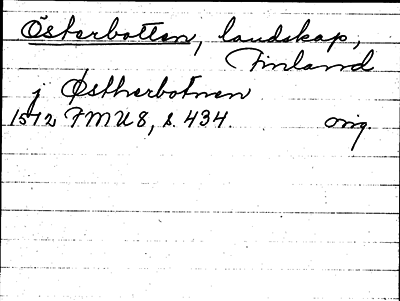 Österbotten, landskap,
Finland
j Østherbotnen
1512 FMU 8, s. 434. orig.